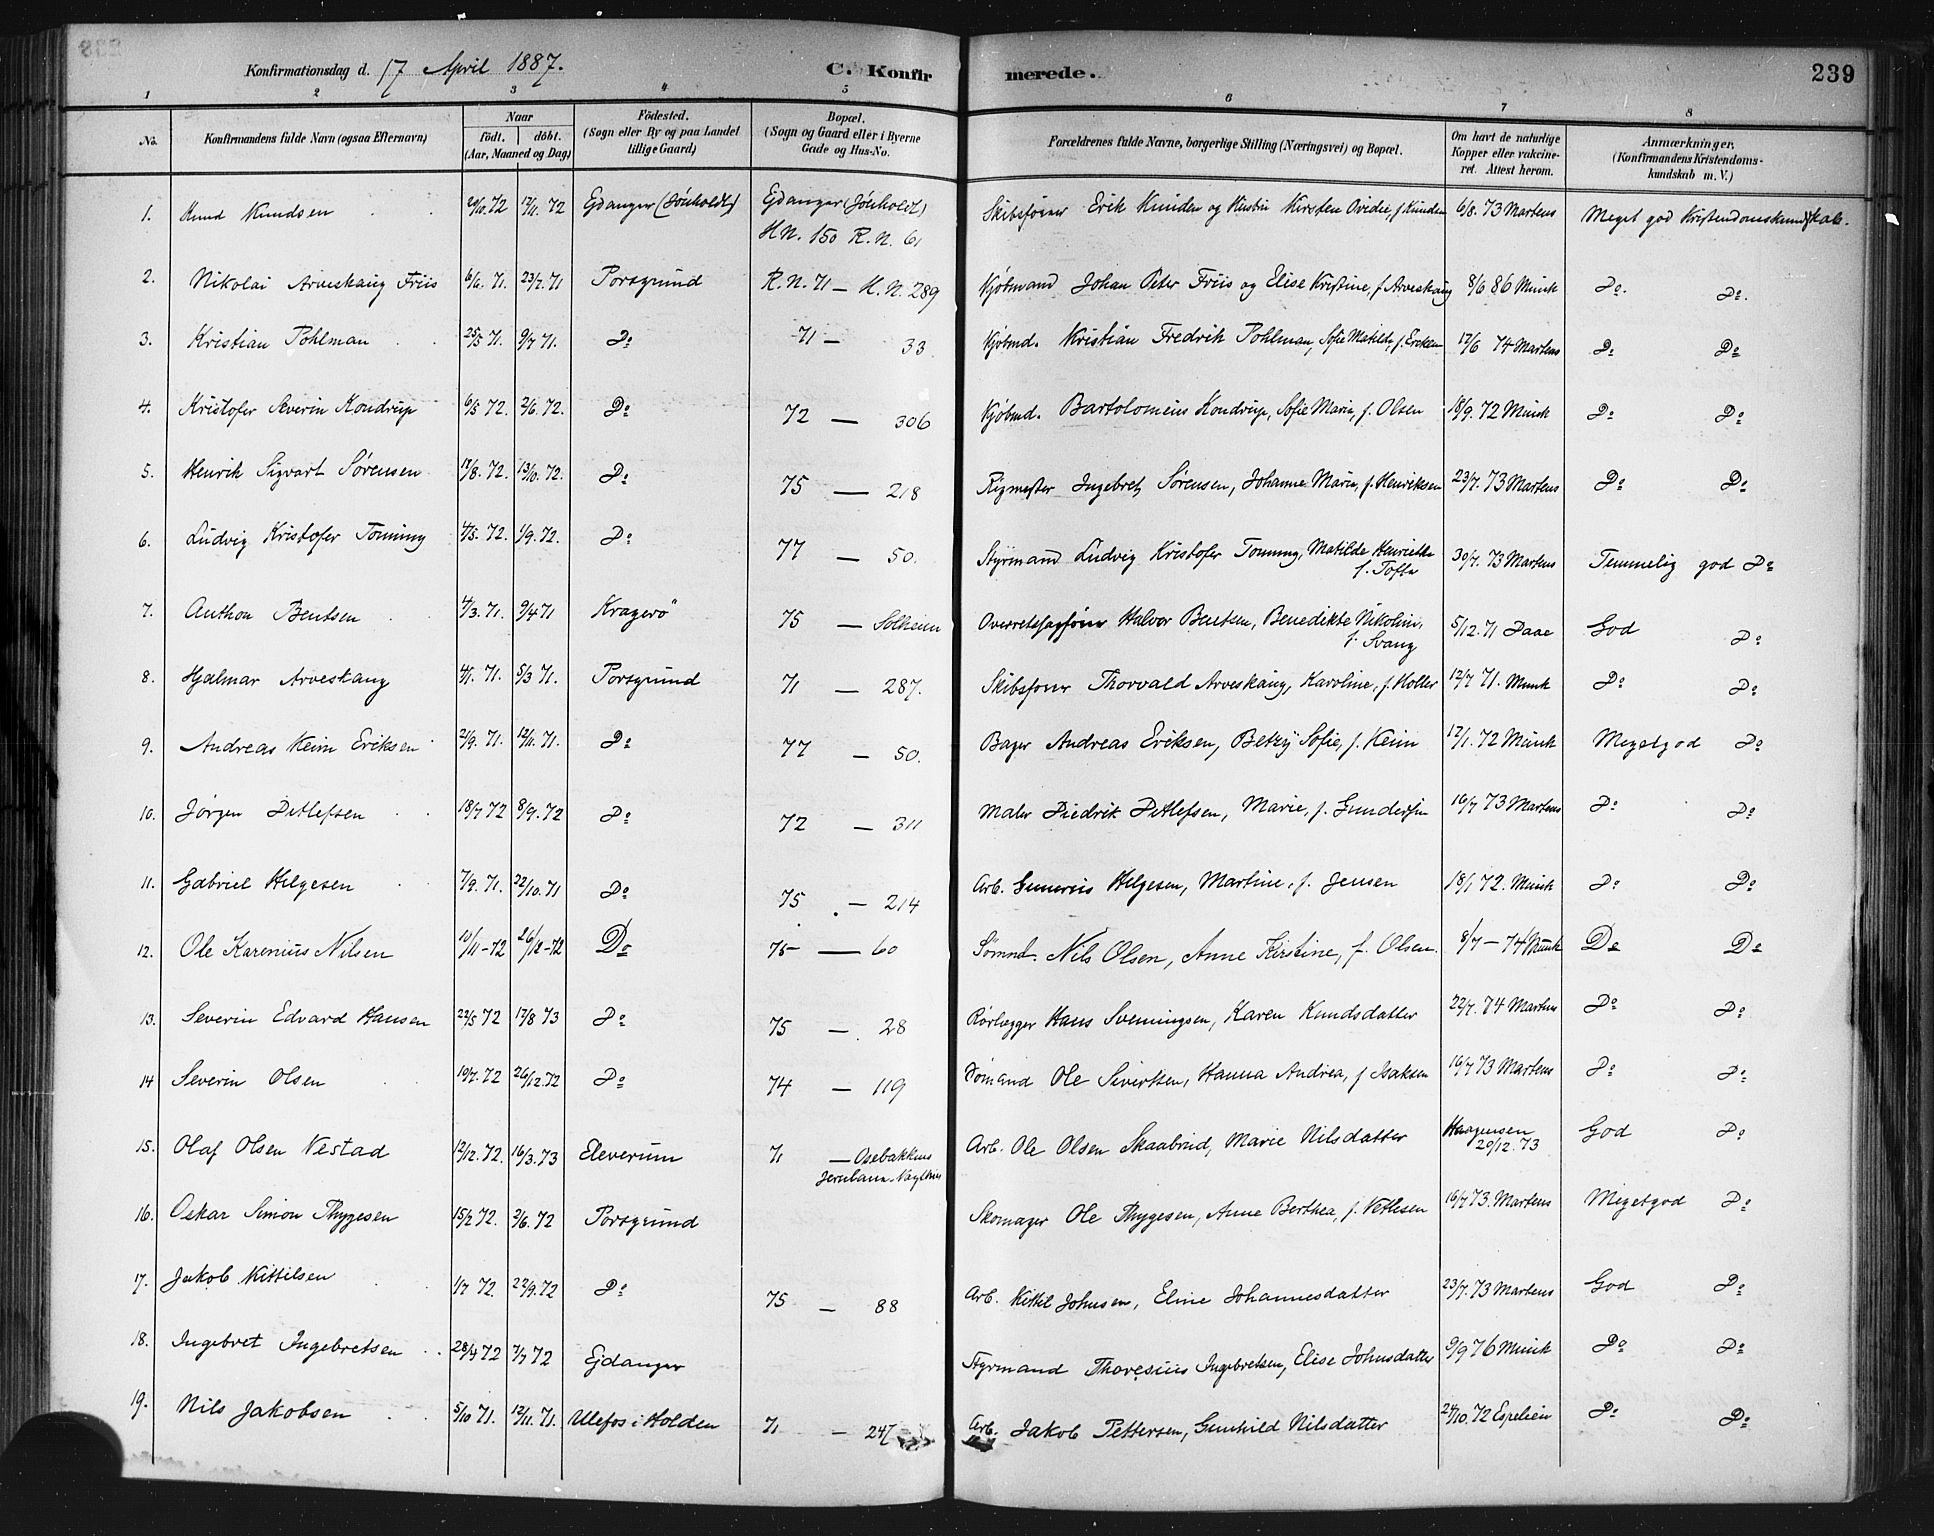 Konfirmationsdag d. 17 April 1887. C. Konfirmerede. 239
1 2 3 4 5 6 7 8
No. Konfirmandens fulde Navn (ogsaa Efternavn) Naar födt. döbt. (Aar, Maaned og Dag) Födested. (Sogn eller By og paa Landet tillige Gaard) Bopæl. (Sogn og Gaard eller i Byerne Gade og Hus-No. Forældrenes fulde Navne, borgerlige Stilling (Næringsvei) og Bopæl. Om havt de naturlige Kopper eller vakcineret. Attest herom. Anmærkninger, (Konfirmandens Kristendomskundskab m. V.)
1. Knud Knudsen 29/10 72 17/11 72 Ejdanger (Jönholdt) Ejdanger (Jönholdt) Skibsfører Erik Knudsen og Hustru Kirsten Ovidie, f. Knudsen 6/8. 73 Martens Meget god Kristendomskundskab.
H.N. 150 R.N. 61
2. Nikolai Arveskaug Friis 6/6. 71. 23/7. 71 Porsgrund R.N. 71 — H.N. 289 Kjöbmand Johan Peter Friis og Elise Kristine, f. Arveskaug 8/6 86 Munk Do. Do.
3. Kristian Pohlman 25/5 71. 9/7 71. Do 71 — 33 Kjöbmd. Kristian Fredrik Pohlman, Sofie Matilde, f. Eriksen 17/6 74 Martens Do Do
4. Kristofer Severin Kondrup 6/5 72. 2/6. 72. Do 72 — 306 Kjöbmd. Bartolomeus Kondrup, Sofie Marie, f. Olsen 18/9. 72 Munk Do Do
5. Henrik Sigvart Sørensen 17/8. 72. 13/10. 72. Do 75 — 218 Rigmester Ingebret Sørensen, Johanne Marie, f. Henriksen 23/7. 73 Martens Do Do
6. Ludvig Kristofer Tonning 4/5. 72. 1/9. 72. Do 77 — 50. Styrmand Ludvig Kristofer Tonning, Matilde Henriette f. Tofte 30/7. 73 Martens Temmelig god Do
7. Anthon Bentsen 4/3. 71. 9/4 71 Kragerö 75 — Solheim Overretssagfører Halvor Bentsen, Benedikte Nikoline, f. Svang 5/12. 71 Daae God Do
8. Hjalmar Arveskaug 4/1. 71. 5/3 71. Porsgrund 71 — 287. Skibsfører Thorvald Arveskaug, Karoline, f. Møller 12/7 71. Munk Do Do
9. Andreas Keim Eriksen 21/9. 71. 12/11. 71. Do 77 — 50. Bager Andreas Eriksen, Betzy Sofie, f. Keim 17/1. 72 Munk Megetgod Do
10. Jörgen Ditlefsen 18/7 72 8/9. 72 Do 72 — 311 Maler Diedrik Ditlefsen, Marie, f. Gundersen 16/7 73 Martens Do Do
11. Gabriel Helgesen 7/9. 71. 22/10. 71 Do 75 — 214 Arb. Gunerius Helgesen, Martine, f. Jensen 18/1 72. Munk Do Do
12. Ole Karenius Nilsen 10/11-72 26/12-72 Do 75 — 60 Sømnd. Nils Olsen, Anne Kirstine, f. Olsen. 8/7 - 74 Munk Do Do
13. Severin Edvard Hansen 22/5 72 17/8 73 Do 75 — 28 Rørlægger Hans Svenningsen, Karen Knudsdatter 22/7. 74 Martens Do Do
14 Severin Olsen 19/7. 72 26/12. 72 Do 74 — 119 Sømand Ole Sivertsen, Hanna Andrea, f. Isaksen 16/7 73 Martens Do Do
15. Olaf Olsen Vestad 12/12. 72. 16/3. 73 Eleverum 71 — Osebakkens Arb. Ole Olsen Skaabrud, Marie Nilsdatter Haagensen 20/12. 73 God Do
16. Oskar Simon Thygesen 15/2 72. 2/6. 72 Porsgrund Skomager Ole Thygesen, Anne Berthea, f. Vetlesen 16/7 73. Martens Megetgod Do
17. Jakob Kittilsen 1/7 72. 22/9. 72 Do 75 — 88 Arb. Kittil Johnsen, Eline Johannesdatter 23/7. 73 Martens God Do
18. Ingebret Ingebretsen 28/4 72 7/7 72 Ejdanger Styrmand Thoresius Ingebretsen, Elise Johnsdatter 9/9 76 Munk Do Do
19. Nils Jakobsen 5/10 71. 12/11. 71. Ulefos i Holden 71 — 247 Arb. Jakob Pettersen, Gunhild Nilsdatter 24/10. 72 Espelien Do Do